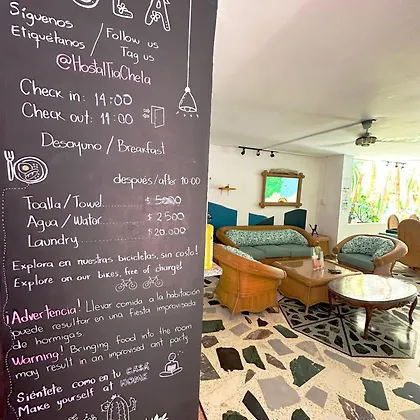 OLA
Síguenos / Follow us
Etiquétanos / Tag us
@HostalTiaChela
Check in: 14:00
Check out: 11:00
Desayuno / Breakfast
después/after 10:00
Toalla/Towel ........ $ 5000
Agua/Water ........ $ 2500
Laundry ........ $20.000
Explora en nuestras bicicletas, sin costo!
Explore on our bikes, free of charge!
¡Advertencia! Llevar comida a la habitación
puede resultar en una fiesta improvisada
de hormigas.
Warning! Bringing food into the room
may result in an improvised ant party
Siéntete como en tu CASA
Make yourself at HOME